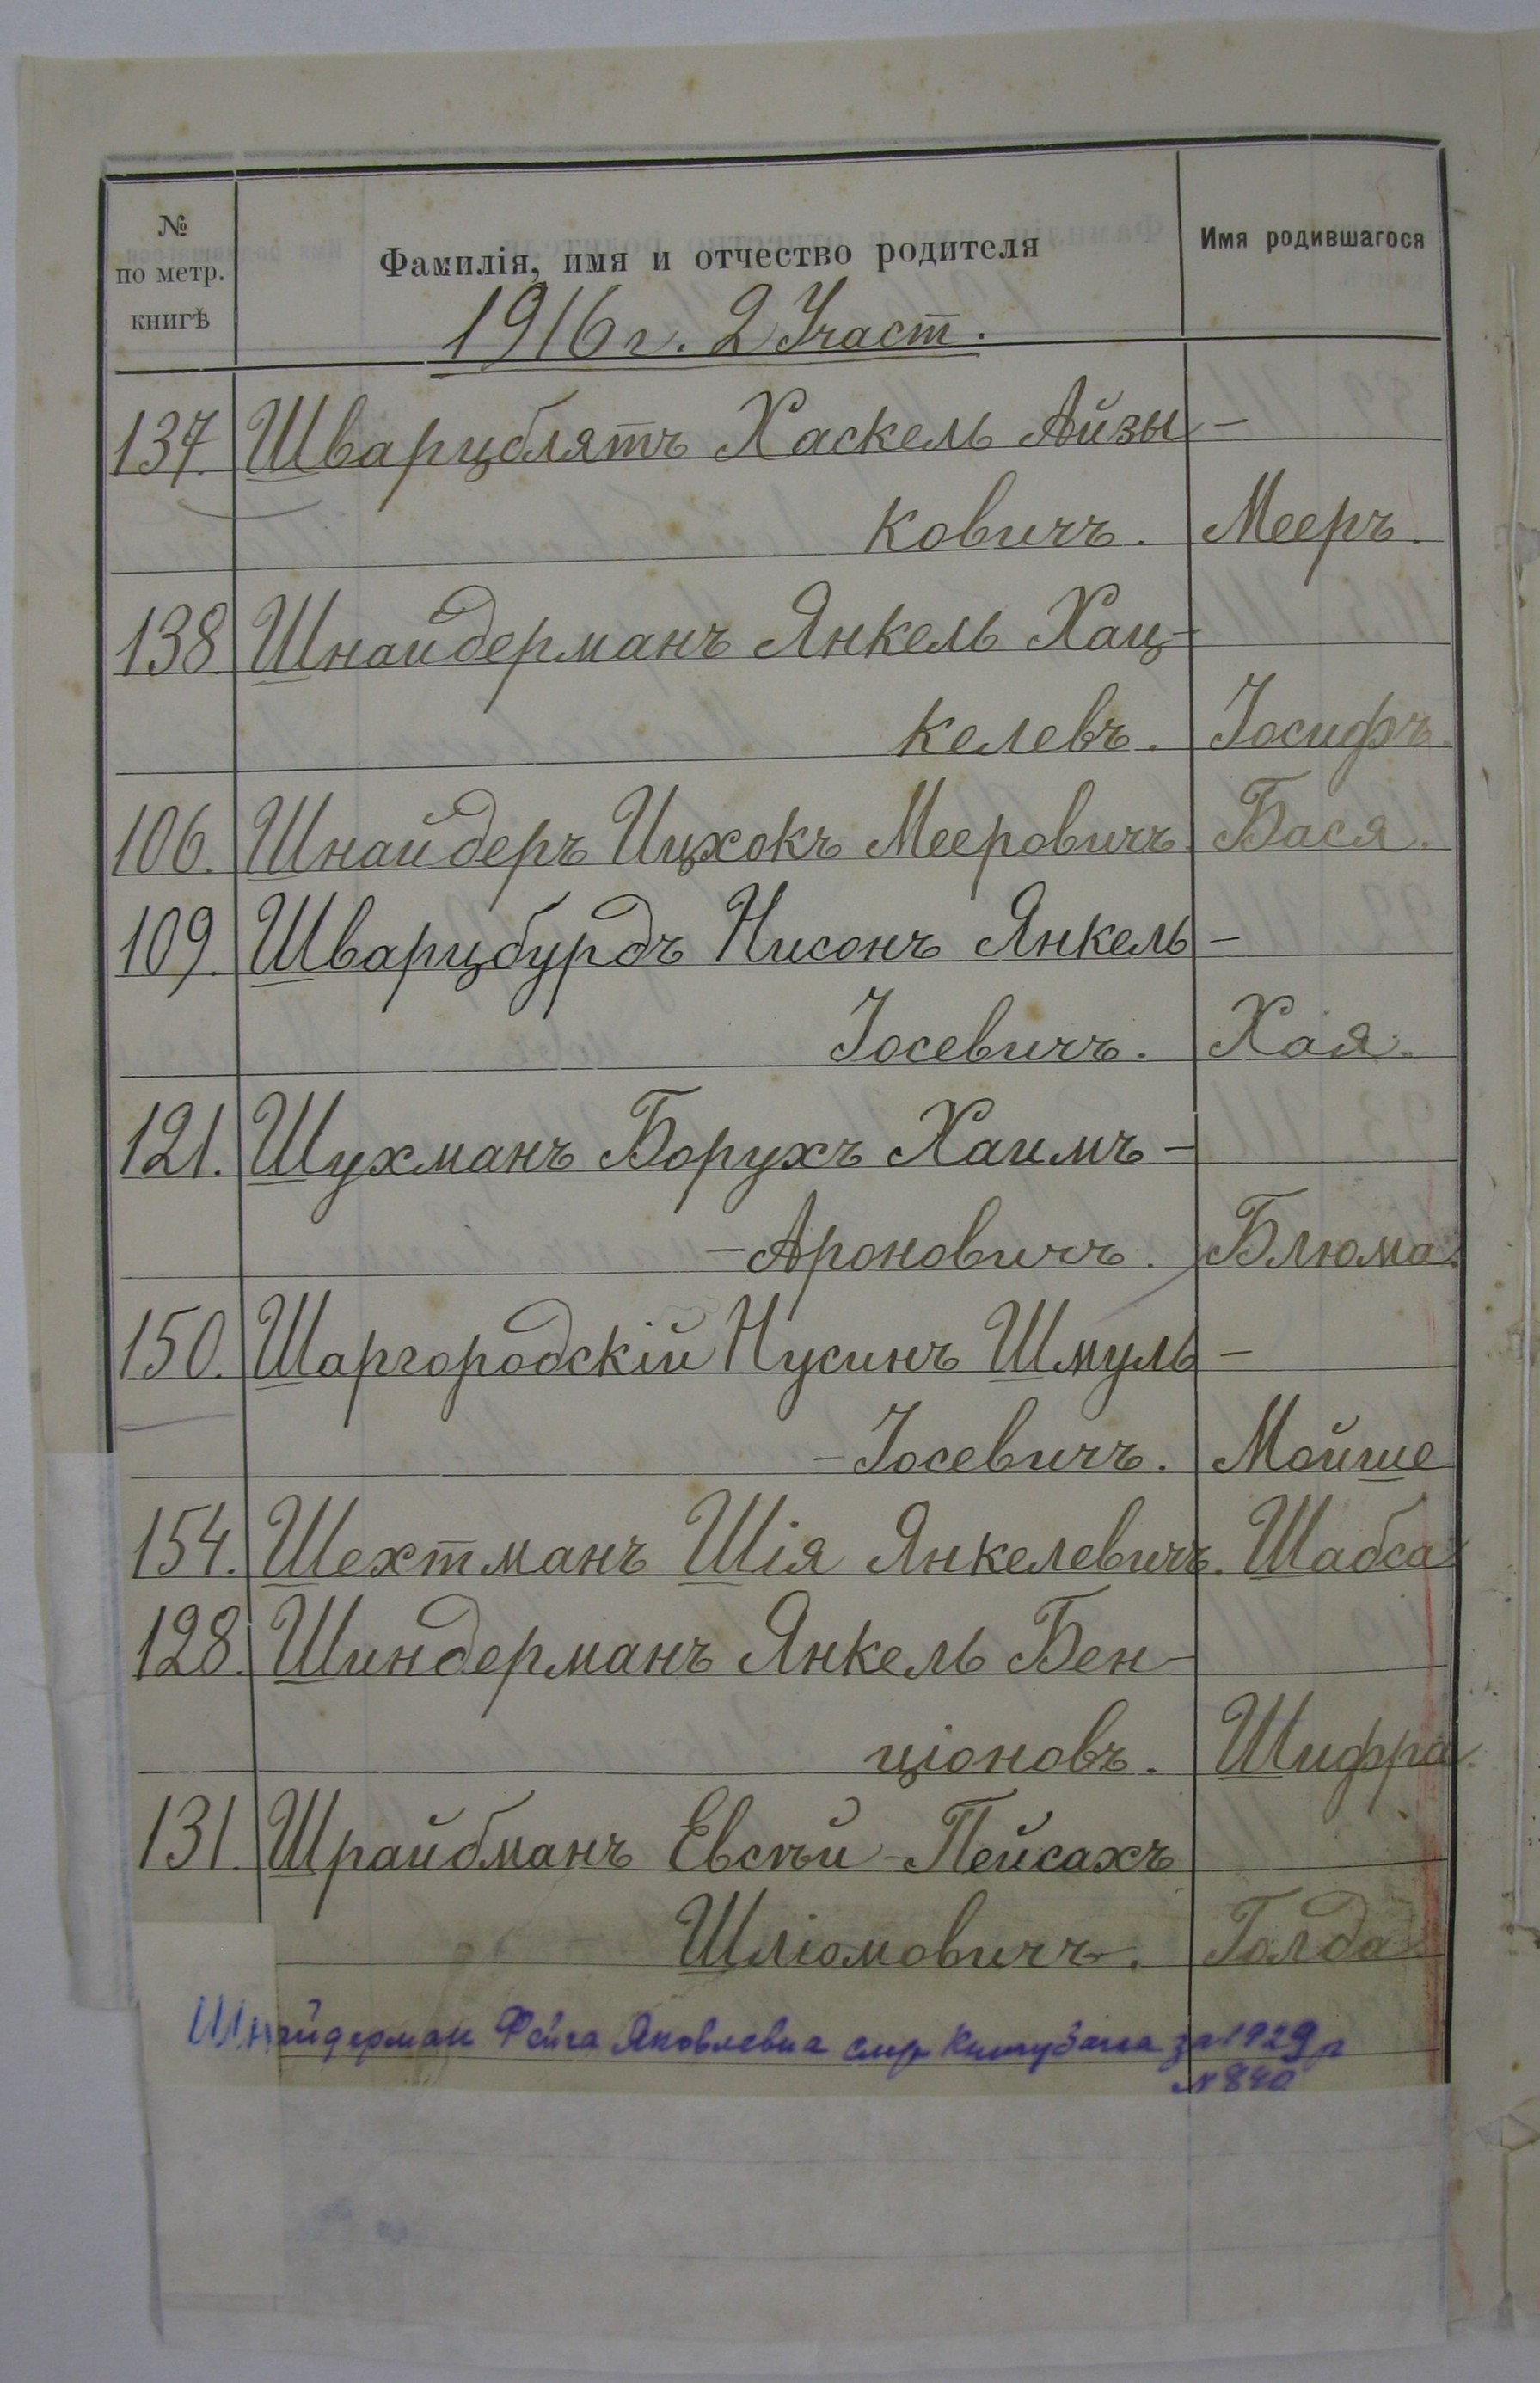 № по метр. книгѣ
Фамилія, имя и отчество родителя
Имя родившагося
1916 г. 2 Участ.
137. Шварцблятъ Хаскель Айзы-
ковичъ. Мееръ.
138 Шнайдерманъ Янкель Хац-
келевъ. Іосифъ.
106. Шнайдеръ Ицхокъ Мееровичъ. Бася.
109. Шварцбурдъ Нисонъ Янкель-
Іосевичъ. Хая.
121. Шухманъ Борухъ Хаимъ-
-Ароновичъ. Блюма.
150. Шаргородскій Нусинъ Шмуль-
-Іосевичъ. Мойше
154. Шехтманъ Шія Янкелевичъ. Шабса
128. Шиндерманъ Янкель Бен-
ціоновъ. Шифра
131. Шрайбманъ Евсѣй-Пейсахъ
Шліомовичъ. Голда
Шнайдерман Фейга Яковлевна смр за 1929 г
№ 840